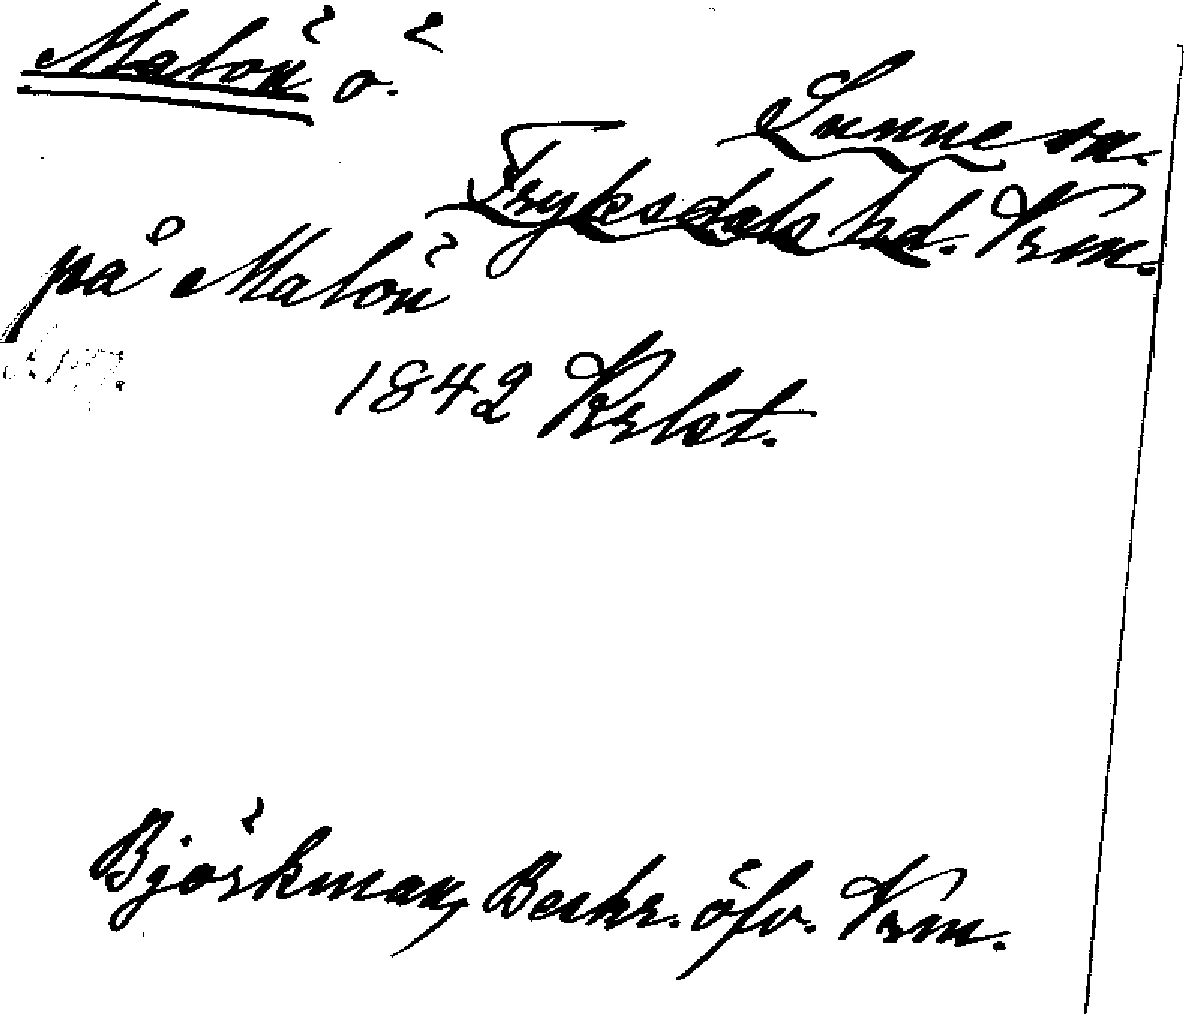 Malön ö.
Sunne sn.
Fryksdals hd. Vrm.
på Malön
1842 Krlst.
Björkman, Beskr. öfv. Vrm.